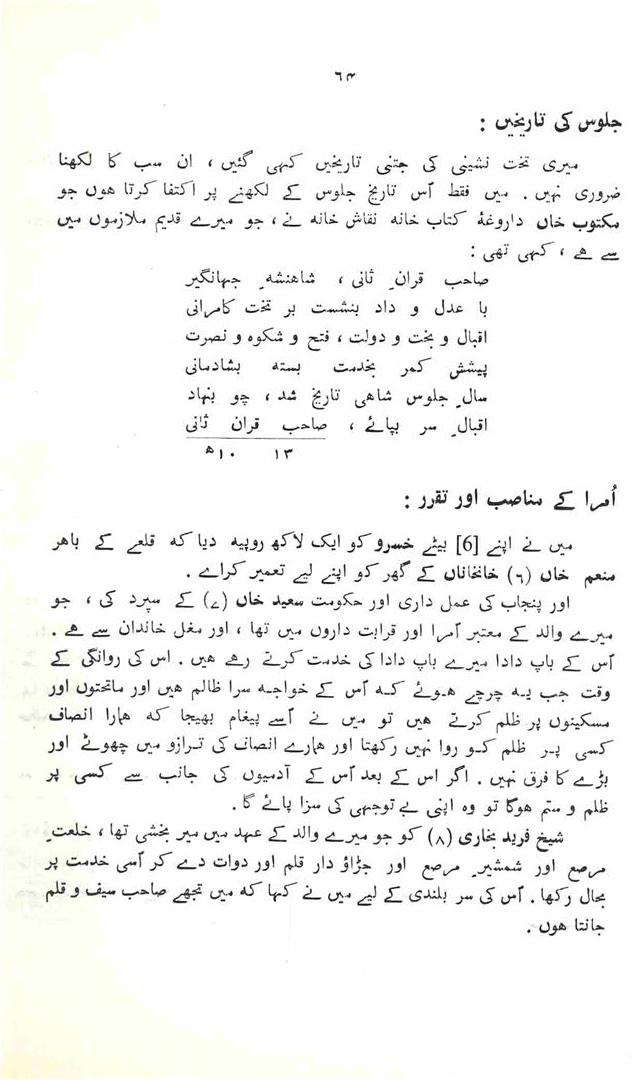 ٦٤
جلوس کی تاریخیں :
میری تخت نشینی کی جتنی تاریخیں کہی گئیں ، ان سب کا لکھنا
ضروری نہیں . میں فقط اُس تاریخ جلوس کے لکھنے پر اکتفا کرتا ہوں جو
مکتوب خاں داروغۂ کتاب خانہ نقاش خانہ نے ، جو میرے قدیم ملازموں میں
سے ہے ، کہی تھی :
صاحب قرانِ ثانی ، شاہنشہِ جہانگیر
با عدل و داد بنشست بر تخت کامرانی
اقبال و بخت و دولت ، فتح و شکوہ و نصرت
پیشش کمر بخدمت بستہ بشادمانی
سالِ جلوس شاہی تاریخ شد ، چو بنہاد
اقبالِ سر بپائے ، صاحب قران ثانی
١٣ ١٠ھ
اُمرا کے مناصب اور تقرر :
میں نے اپنے [6] بیٹے خسرو کو ایک لاکھ روپیہ دیا کہ قلعے کے باہر
منعم خاں (٦) خانخاناں کے گھر کو اپنے لیے تعمیر کراے .
اور پنجاب کی عمل داری اور حکومت سعید خاں (۷) کے سپرد کی ، جو
میرے والد کے معتبر اُمرا اور قرابت داروں میں تھا ، اور مغل خاندان سے ہے .
اُس کے باپ دادا میرے باپ دادا کی خدمت کرتے رہے ہیں . اس کی روانگی کے
وقت جب یہ چرچے ہوئے کہ اُس کے خواجہ سرا ظالم ہیں اور ماتحتوں اور
مسکینوں پر ظلم کرتے ہیں تو میں نے اُسے پیغام بھیجا کہ ہمارا انصاف
کسی پر ظلم کو روا نہیں رکھتا اور ہمارے انصاف کی ترازو میں چھوٹے اور
بڑے کا فرق نہیں . اگر اس کے بعد اُس کے آدمیوں کی جانب سے کسی پر
ظلم و ستم ہوگا تو وہ اپنی بے توجہی کی سزا پائے گا .
شیخ فرید بخاری (۸) کو جو میرے والد کے عہد میں میر بخشی تھا ، خلعتِ
مرصع اور شمشیرِ مرصع اور جڑاؤ دار قلم اور دوات دے کر اُسی خدمت پر
بحال رکھا . اُس کی سر بلندی کے لیے میں نے کہا کہ میں تجھے صاحب سیف و قلم
جانتا ہوں .